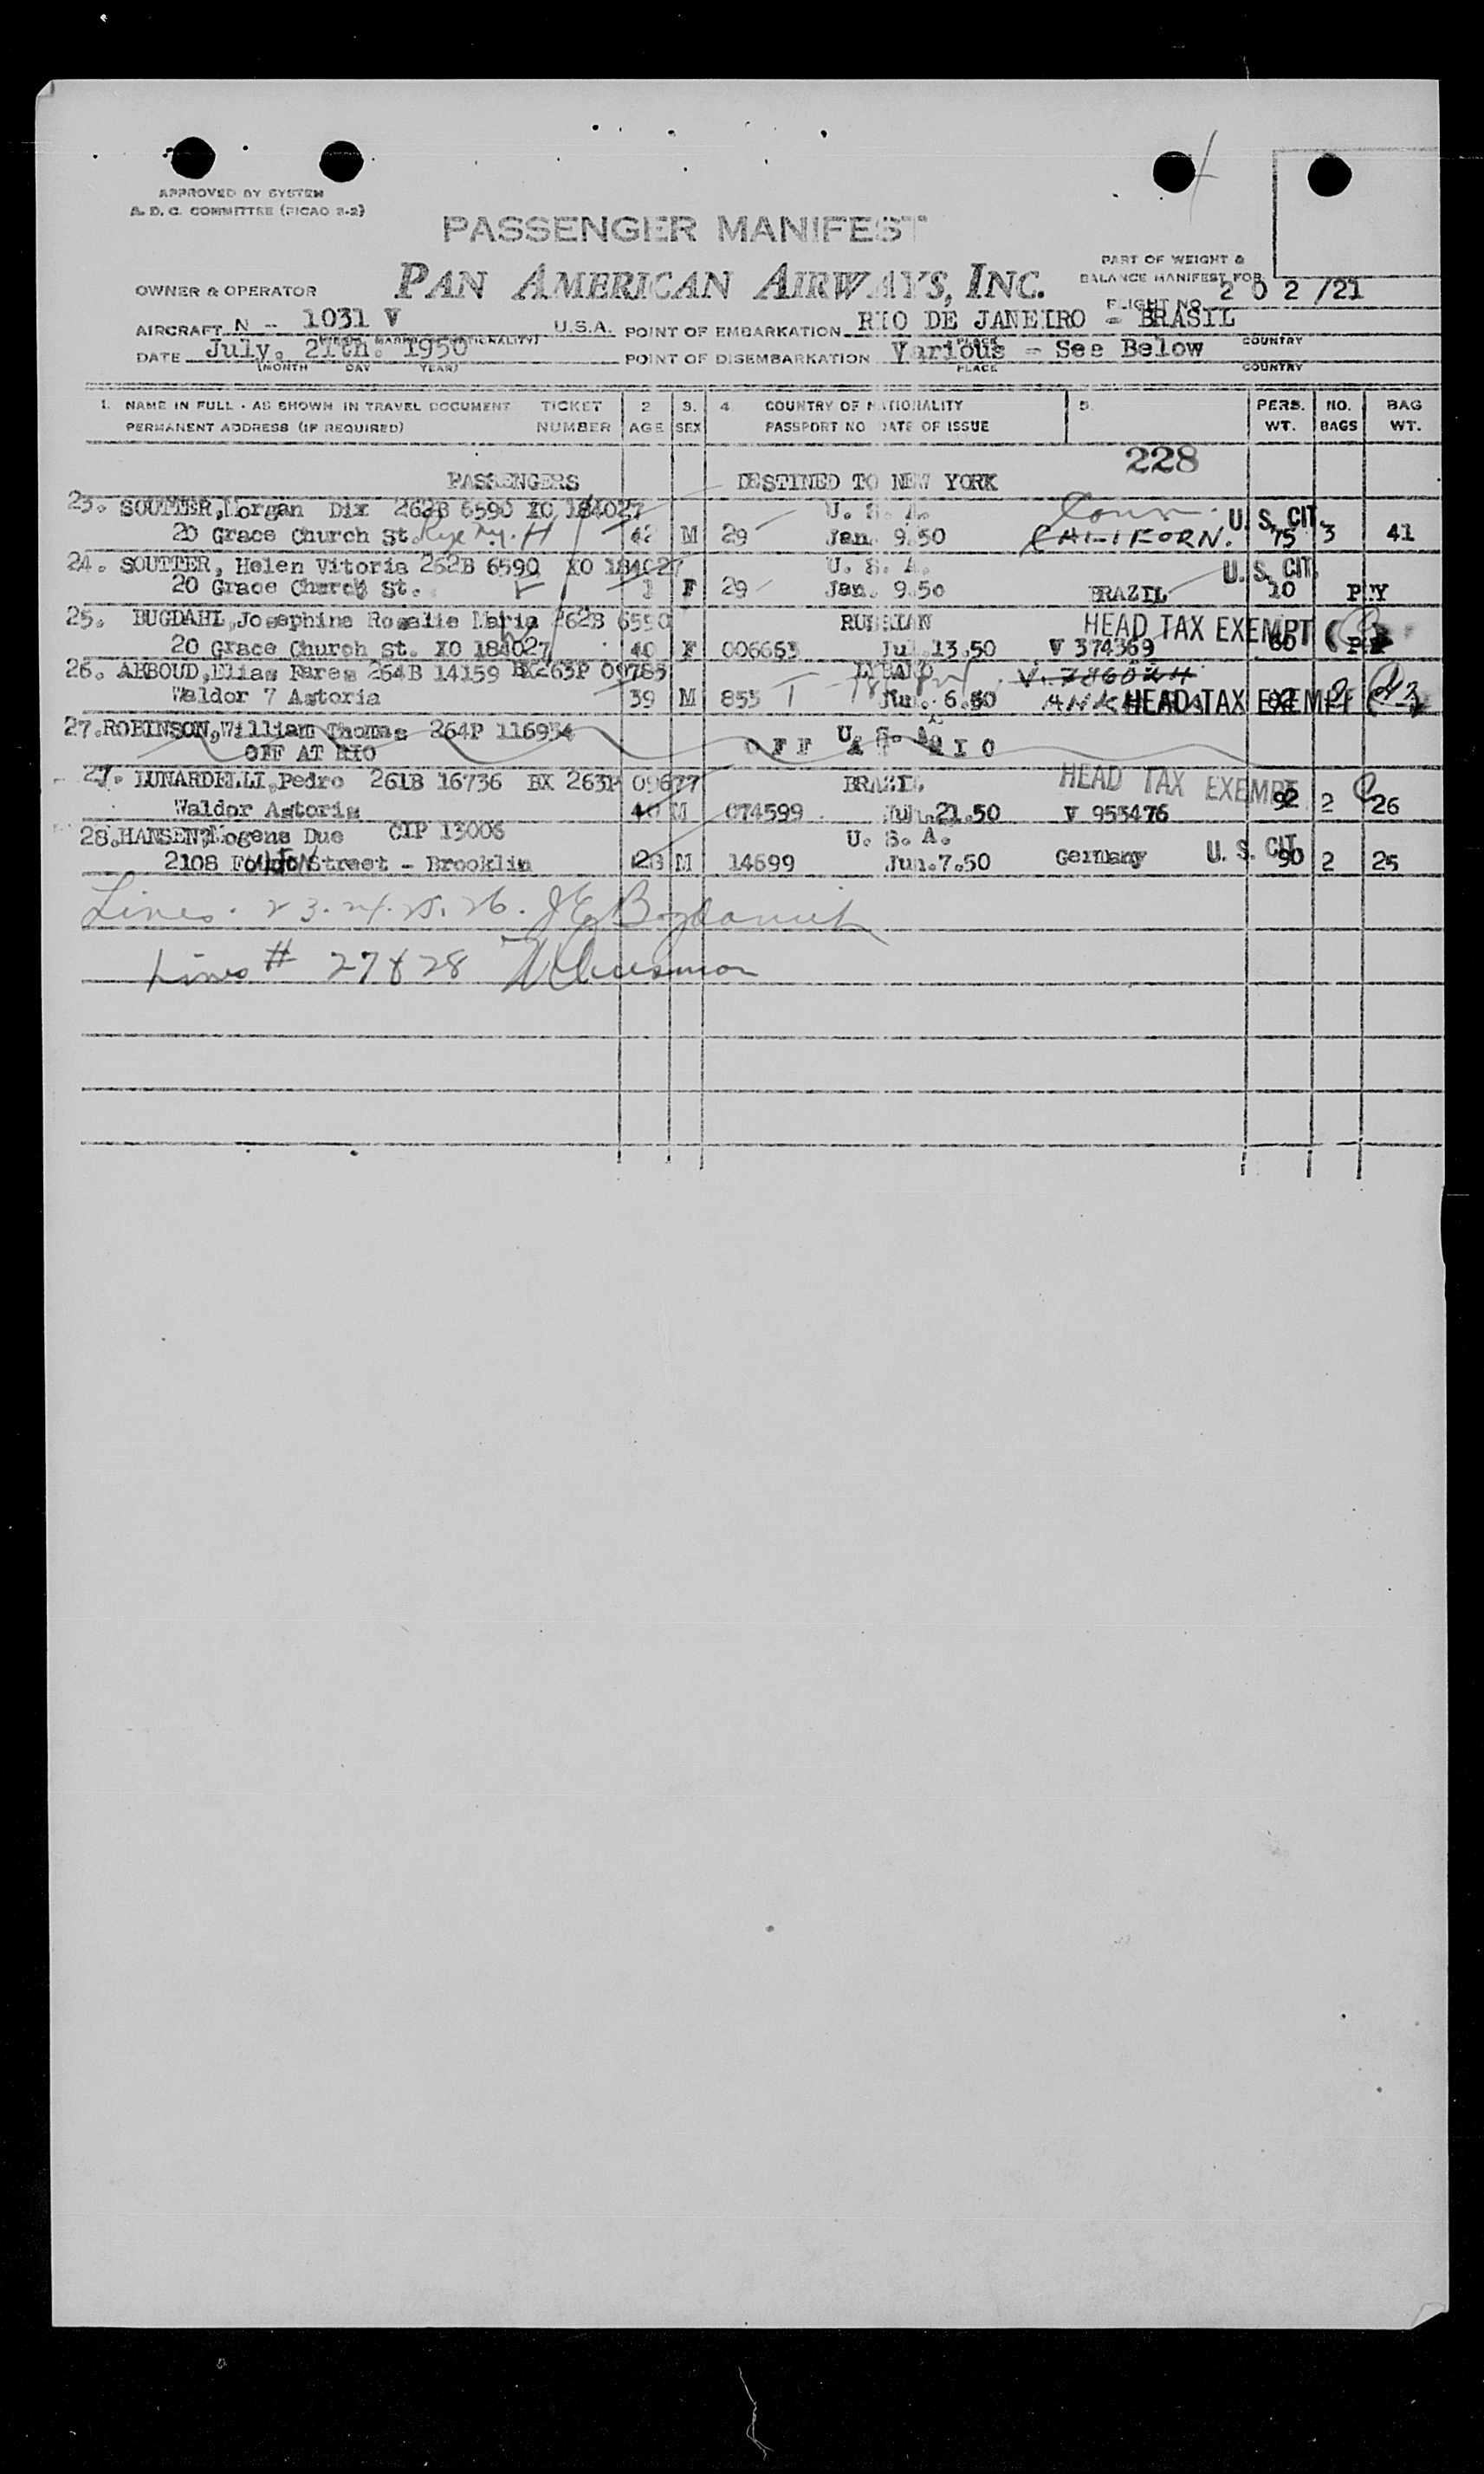 APPROVED BY SYSTEM
A. D. C. COMMITTEE (PICAO 8-2)
PASSENGER MANIFEST
PAN AMERICAN AIRWAYS, INC.
PART OF WEIGHT &
BALANCE MANIFEST FOR
FLIGHT NO. 2 0 2 /21
OWNER & OPERATOR
AIRCRAFT N - 1031 V U.S.A. POINT OF EMBARKATION RIO DE JANEIRO - BRASIL
PLACE COUNTRY
DATE July. 21th. 1950 POINT OF DISEMBARKATION Various - See Below
(MONTH DAY YEAR) PLACE COUNTRY
1. NAME IN FULL - AS SHOWN IN TRAVEL DOCUMENT TICKET 2 3. 4 COUNTRY OF NATIONALITY 5. PERS. NO. BAG
PERMANENT ADDRESS (IF REQUIRED) NUMBER AGE SEX PASSPORT NO DATE OF ISSUE WT. BAGS WT.
228
PASSENGERS DESTINED TO NEW YORK
23. SOUTTER, Morgan Dix 262B 6590 XO 184027 U. S. A. Conn. U. S. CIT.
20 Grace Church St. Rye N.Y. 42 M 29 Jan. 9.50 CALIFORN. 75 3 41
24. SOUTTER, Helen Vitoria 262B 6590 XO 184027 U. S. A. U. S. CIT.
20 Grace Church St. 1 F 29 Jan. 9.50 BRAZIL 10 P.Y
25. BUGDAHL, Josephine Rosalie Maria 262B 6590 RUSSIAN HEAD TAX EXEMPT
20 Grace Church St. XO 184027 40 F 006653 Jul.13.50 V 374369 60
26. ABBOUD, Elias Fares 264B 14159 BX263P 09785 V. 786024
Waldor 7 Astoria 39 M 855 T Jul. 6.50 HEAD TAX EXEMPT
27. ROBINSON, William Thomas 264P 116934 U. S. A.
OFF AT RIO O F F A T R I O
27. LUNARDELLI, Pedro 261B 16736 BX 263P 09677 BRAZIL HEAD TAX EXEMPT
Waldor Astoria 40 M 074599 Jul.21.50 V 955476 92 2 26
28. HANSEN, Mogens Due CIP 13006 U. S. A. U. S. CIT.
2108 Street - Brooklin 28 M 14699 Jun.7.50 Germany 90 2 25
Lines. 23. 24. 25. 26.
Lines # 27 & 28